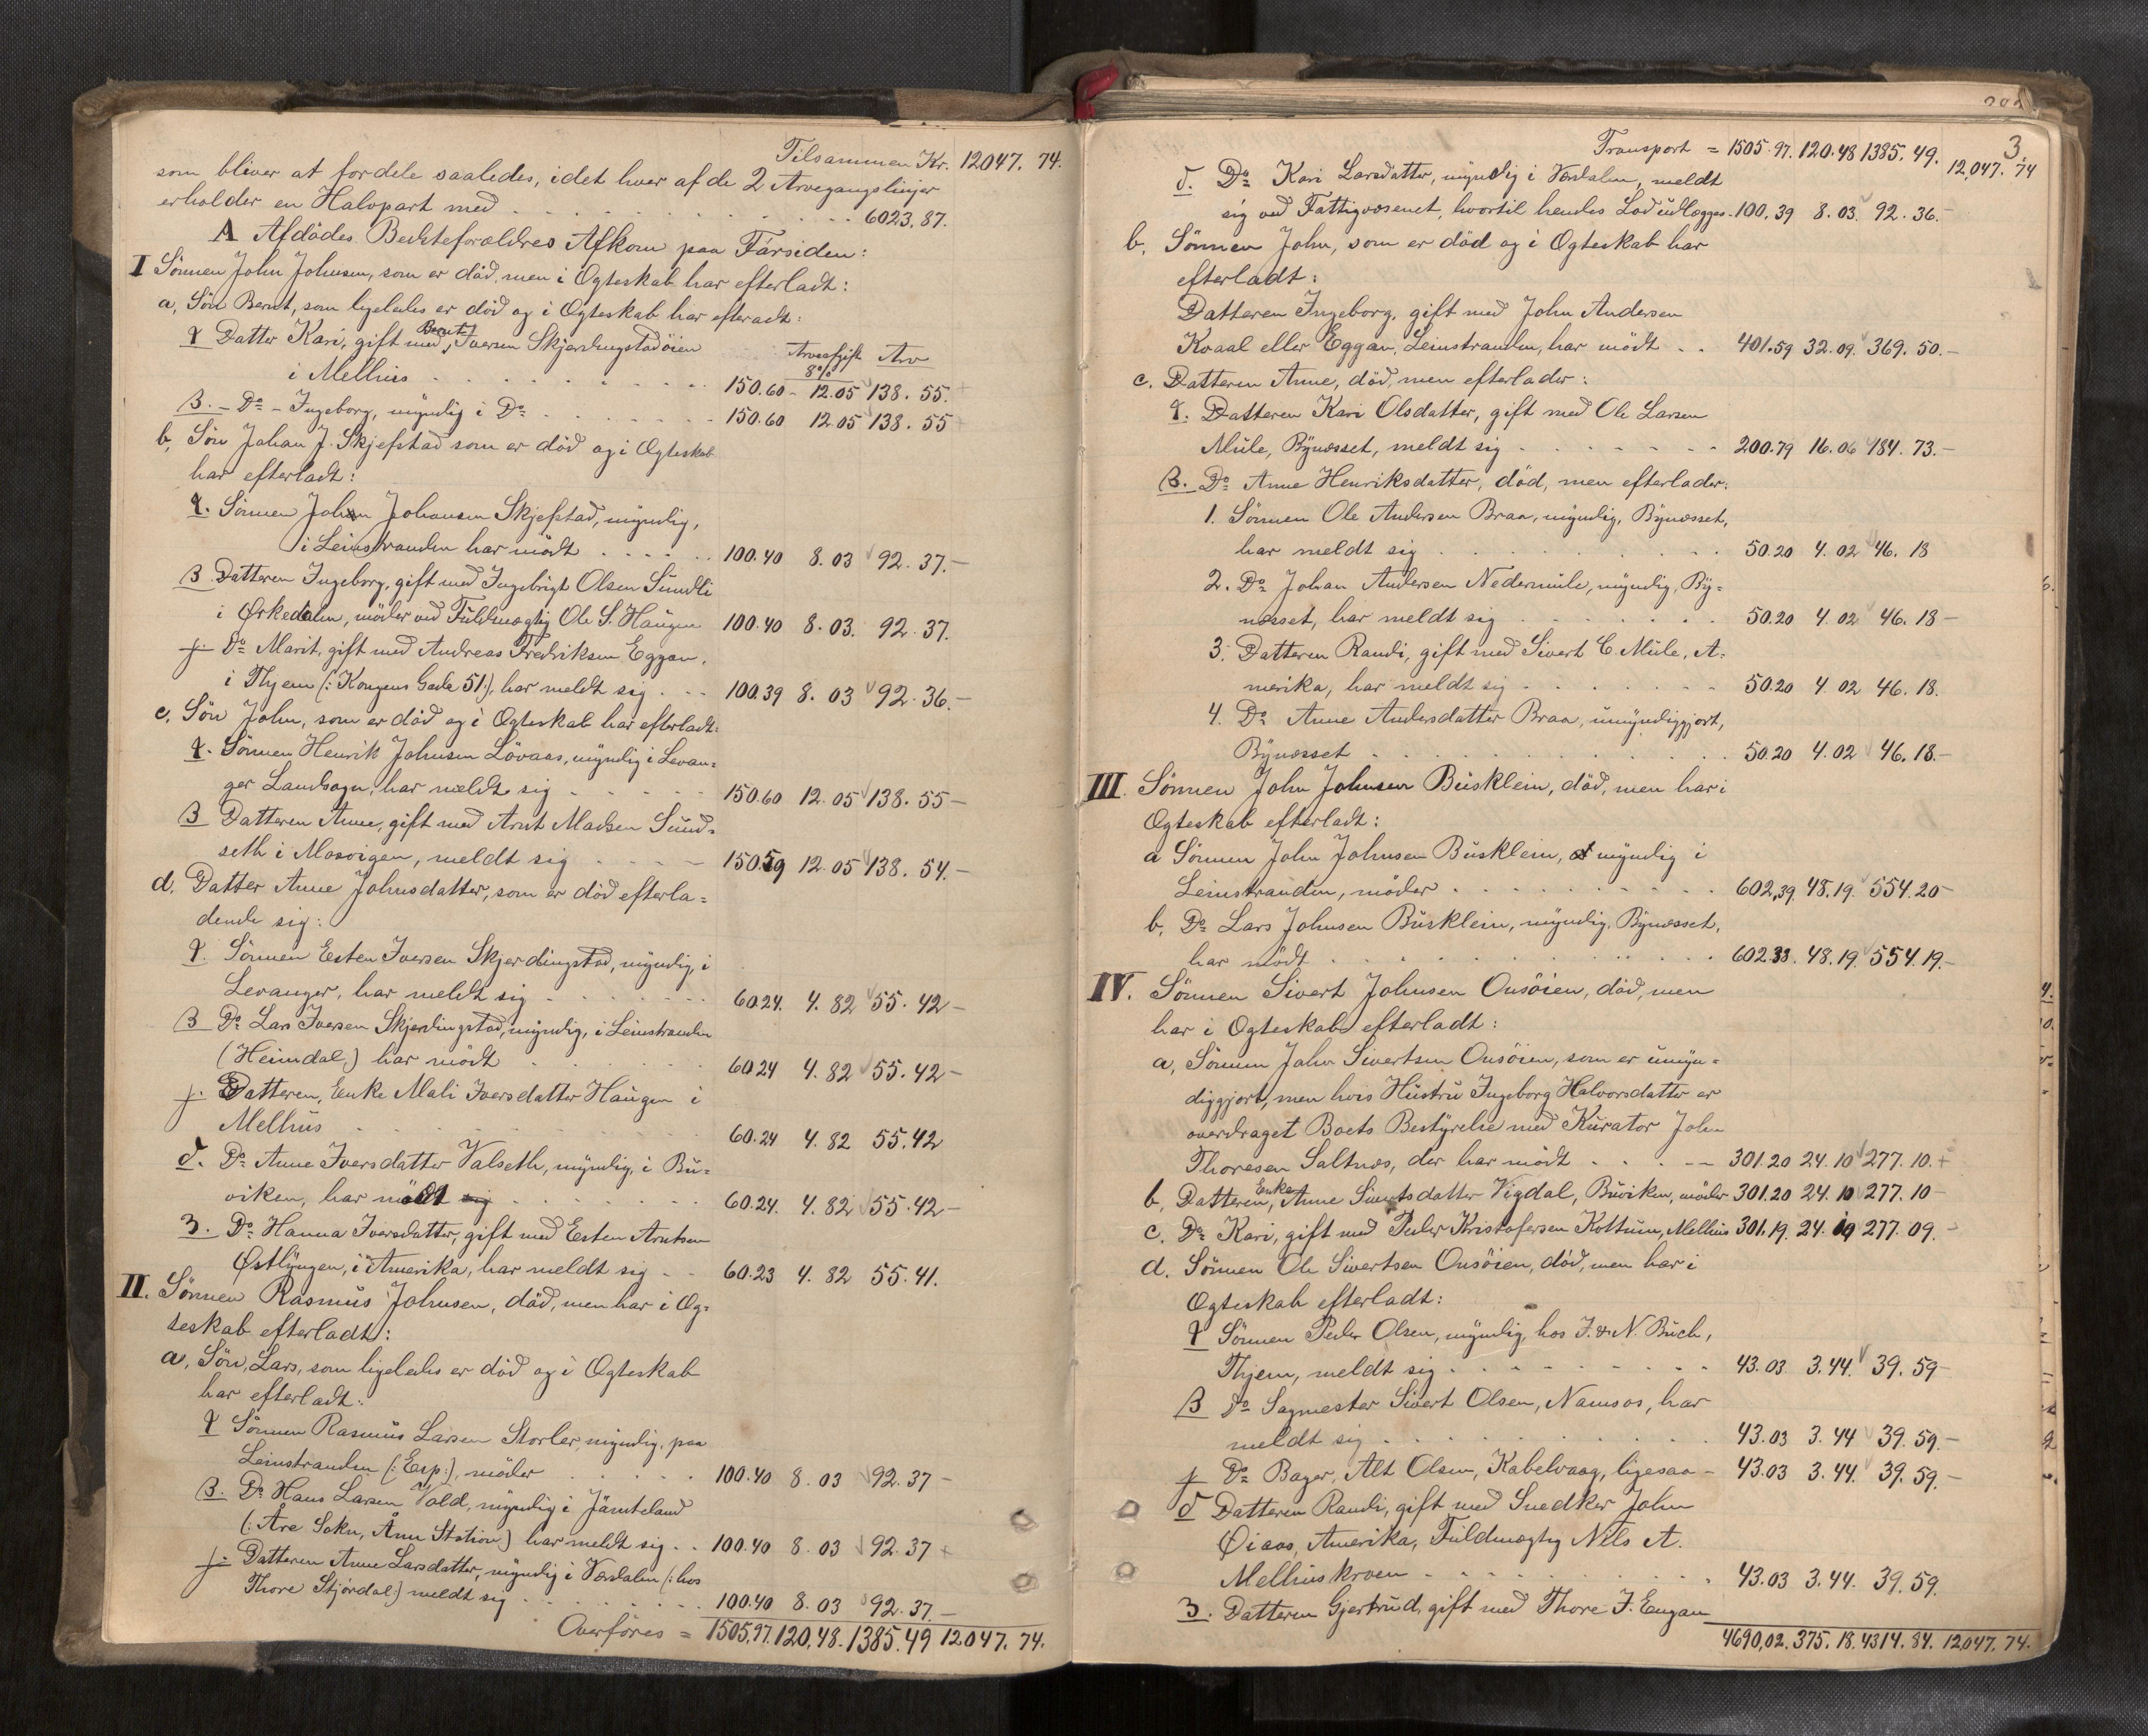 Tilsammen Kr. 12047. 74.
som bliver at fordele saaledes, idet hver af de 2 Arvegangslinjer
erholder en Halvpart med . . . 6023,87.
A Afdødes Bedsteforældres Afkom paa Farsiden:
I Sönnen John Johnsen, som er död, men i Ogteskab har efterladt:
a, Sön Bernt, som ligeledes er död og i Ogteskab har efteradt:
Arveafgift 8% Arv
α Datter Kari, gift med Bernt Iversen Skjerdingstadöien
i Melhus . . . 150.60 - 12.05 138. 55.
β. - Do - Ingeborg, myndig i Do . . . 150.60 12.05 138. 55
b, Sön Johan J. Skjefstad som er död og i Ogteskab
har efterladt:
α. Sönnen Johan Johansen Skjefstad, myndig,
i Leinstranden har mödt . . . 100.40 8.03 92.37.-
β Datteren Ingeborg, gift med Ingebrigt Olsen Sundli
i Ørkedalen, möder ved Fuldmægtig Ole S. Haugen 100.40 8.03. 92.37.
γ. Do Marit, gift med Andreas Fredriksen Eggan,
i Thjem (: Kongens Gade 51:), har meldt sig . . . 100.39 8.03 92.36.-
c, Sön John, som er död og i Ogteskab har efterladt:
α. Sönnen Henrik Johnsen Lövaas, myndig i Levan=
ger Landsogn, har meldt sig . . . 150.60 12.05 138. 55-
β Datteren Anne, gift med Arnt Madsen Sund=
seth i Mosvigen, meldt sig . . . 150.59 12.05 138. 54.-
d. Datter Anne Johnsdatter, som er död efterla=
dende sig:
α. Sönnen Esten Iversen Skjerdingstad, myndig, i
Levanger, har meldt sig . . . 60.24. 4.82 55.42-
β Do Lars Iversen Skjerdingstad, myndig, i Leinstranden
(Heimdal,) har mödt . . . 60.24 4.82 55.42-
γ. Datteren, Enke Mali Iversdatter Haugen i
Melhus . . . 60.24 4.82 55.42
δ. Do Anne Iversdatter Valseth, myndig, i Bu=
viken, har mödt sig . . . 60.24. 4.82 55.42-
3. Do Hanna Iversdatter, gift med Esten Arntsen
Østlyngen, i Amerika, har meldt sig . . 60.23 4.82 55.41.
II. Sönnen Rasmus Johnsen, död, men har i Og=
teskab efterladt:
a, Sön, Lars, som ligeledes er död og i Ogteskab
har efterladt:
α Sönnen Rasmus Larsen Storler, myndig, paa
Leinstranden (: Esp:), möder . . . 100.40 8.03 92.37-
β. Do Hans Larsen Vold, myndig i Jämteland
(: Åre Sokn, Ånn Station) har meldt sig . . 100.40 8.03 92.37+
γ. Datteren Anne Larsdatter, myndig i Værdalen (: hos
Thore Stjördal:) meldt sig . . . 100.40 8.03 92.37.-
Overföres = 1505,97. 120,48. 1385.49 12047. 74.
3
Transport = 1505.97. 120.48 1385.49. 12,047. 74
δ. Do Kari Larsdatter, myndig i Værdalen, meldt
sig ved Fattigvæsenet, hvortil hendes Lod udlægges - 100,39 8.03. 92.36.-
b, Sönnen John, som er död og i Ogteskab har
efterladt:
Datteren Ingeborg, gift med John Andersen
Kvaal eller Eggan, Leinstranden, har mödt . . 401.59 32.09. 369.50.-
c. Datteren Anne, död, men efterlader:
α. Datteren Kari Olsdatter, gift med Ole Larsen
Mule, Bynæsset, meldt sig . . . 200.79 16.06 184.73.-
β. Do Anne Henriksdatter, död, men efterlader:
1. Sönnen Ole Andersen Braa, myndig, Bynæsset,
har meldt sig . . . 50.20 4.02 46.18
2. Do Johan Andersen Nedermule, myndig, By=
næsset, har meldt sig . . . 50.20 4.02 46.18-
3. Datteren Randi, gift med Sivert C. Mule, A=
merika, har meldt sig . . . 50.20 4.02 46.18.
4. Do Anne Andersdatter Braa, umyndiggjort,
Bynæsset . . . 50.20 4.02 46.18.-
III. Sönnen John Johnsen Busklein, död, men har i
Ogteskab efterladt:
a Sönnen John Johnsen Busklein, myndig i
Leinstranden, möder . . . 602,39. 48.19 554.20-
b, Do Lars Johnsen Busklein, myndig, Bynæsset,
har mödt . . . 602.38. 48.19. 554.19.-
IV. Sönnen Sivert Johnsen Onsöien, död, men
har i Ogteskab efterladt:
a, Sönnen John Sivertsen Onsöien, som er umyn=
diggjort, men hvis Hustru Ingeborg Halvorsdatter er
overdraget Boets Bestyrelse med Kurator John
Thoresen Saltnes, der har mödt . . . 301.20 24.10 277.10.+
b, Datteren, Enke Anne Sivertsdatter Vigdal, Buviken, möder 301.20 24.10 277.10-
c. Do Kari, gift med Peder Kristofersen Kottum, Melhus 301.19. 24.10 277.09.-
d. Sönnen Ole Sivertsen Onsöien, död, men har i
Ogteskab efterladt:
α Sönnen Peder Olsen, myndig, hos F. & N. Buch,
Thjem, meldt sig . . . 43.03 3.44. 39.59-
β Do Sagmester Sivert Olsen, Namsos, har
meldt sig . . . 43.03 3.44 39.59.-
γ Do Bager, Alt Olsen, Kabelvaag, ligesaa - 43.03 3.44. 39.59.-
δ Datteren Randi, gift med Snedker John
Øiaas, Amerika, Fuldmægtig Nels A.
Melhuskroen . . . 43.03 3.44. 39.59.
3. Datteren Gjertrud, gift med Thore J. Engan
4690,02. 375.18. 4314.84. 12047. 74.